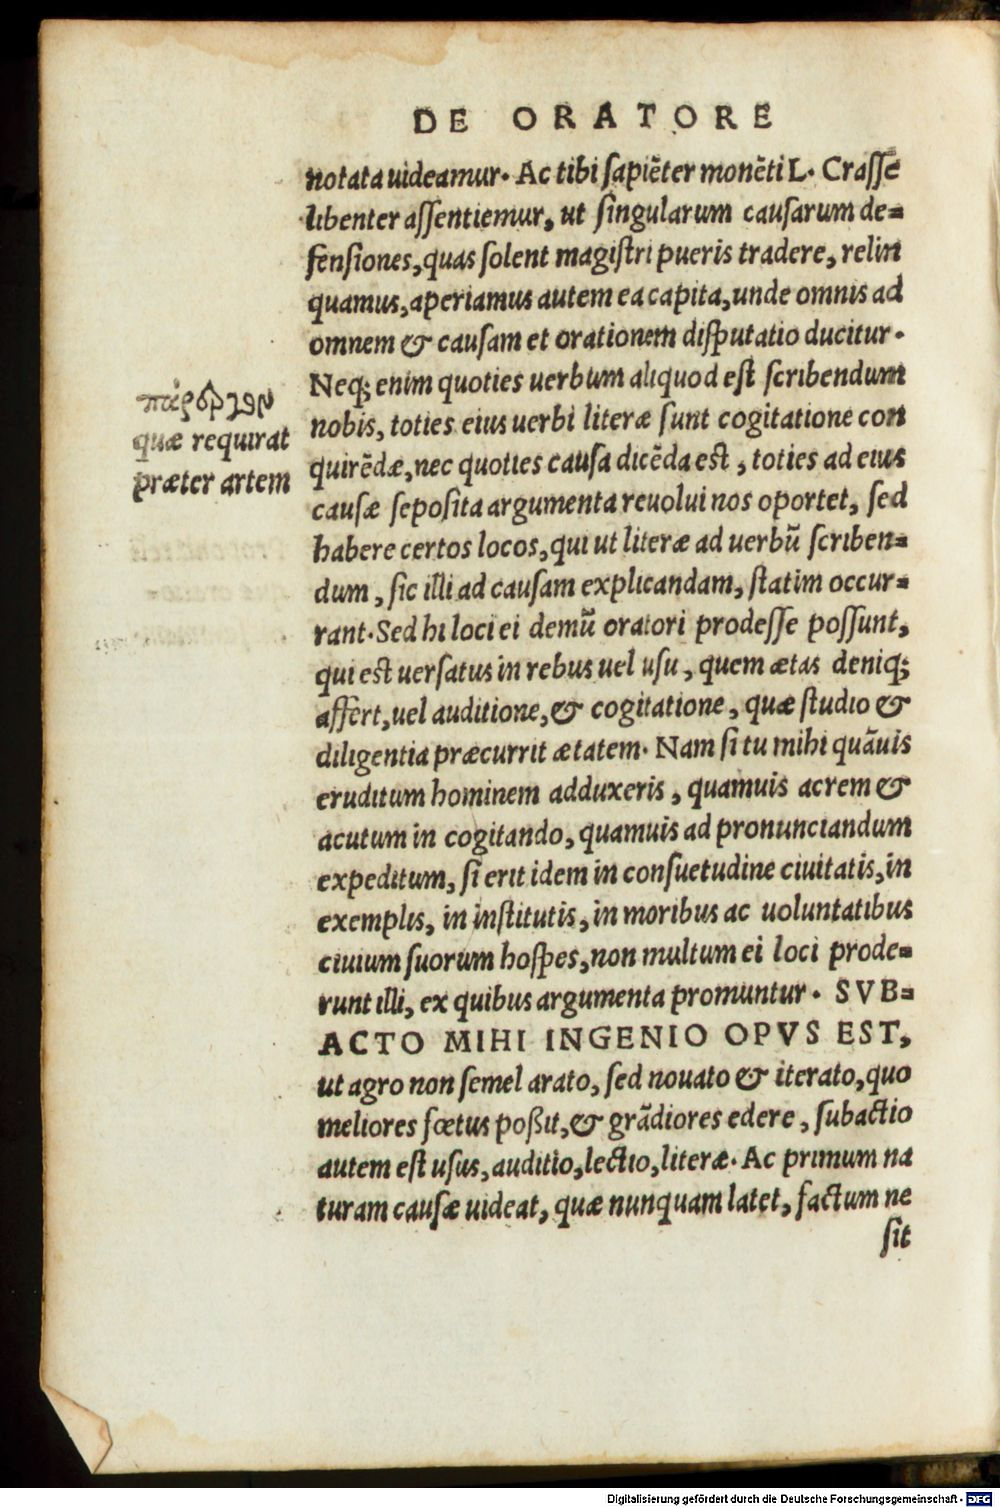 DE ORATORE
notata uideamur. Ac tibi sapiēter monēti L. Crasse
libenter assentiemur, ut singularum causarum de=
fensiones, quas solent magistri pueris tradere, relin
quamus, aperiamus autem ea capita, unde omnis ad
omnem & causam et orationem disputatio ducitur.
Neq; enim quoties uerbum aliquod est scribendum
nobis, toties eius uerbi literæ sunt cogitatione con
quirēdæ, nec quoties causa dicēda est, toties ad eius
causæ seposita argumenta reuolui nos oportet, sed
habere certos locos, qui ut literæ ad uerbū scriben=
dum, sic illi ad causam explicandam, statim occur=
rant. Sed hi loci ei demū oratori prodesse possunt,
qui est uersatus in rebus uel usu, quem ætas deniq;
affert, uel auditione, & cogitatione, quæ studio &
diligentia præcurrit ætatem. Nam si tu mihi quāuis
eruditum hominem adduxeris, quamuis acrem &
acutum in cogitando, quamuis ad pronunciandum
expeditum, si erit idem in consuetudine ciuitatis, in
exemplis, in institutis, in moribus ac uoluntatibus
ciuium suorum hospes, non multum ei loci prode=
runt illi, ex quibus argumenta promuntur. SVB=
ACTO MIHI INGENIO OPVS EST,
ut agro non semel arato, sed nouato & iterato, quo
meliores fœtus poßit, & grādiores edere, subactio
autem est usus, auditio, lectio, literæ. Ac primum na
turam causæ uideat, quæ nunquam latet, factum ne
sit
quæ requirat
præter artem
Digitalisierung gefördert durch die Deutsche Forschungsgemeinschaft - DFG